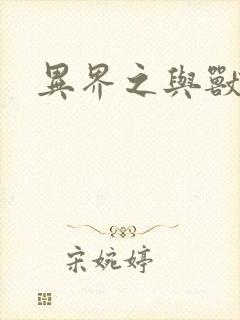 異界之與獸
宋婉婷